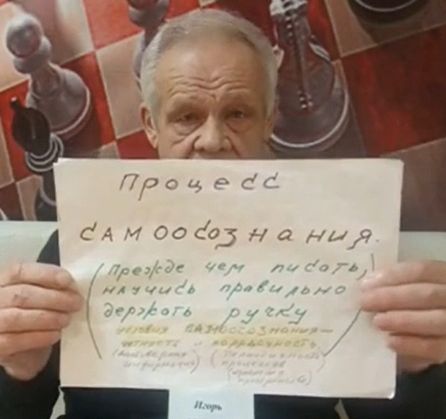 Процесс
самоосознания.
(Прежде чем писать,
научись правильно
держать ручку)
условия самоосознания—
чёткость и порядочность
информации) процесса
Игорь